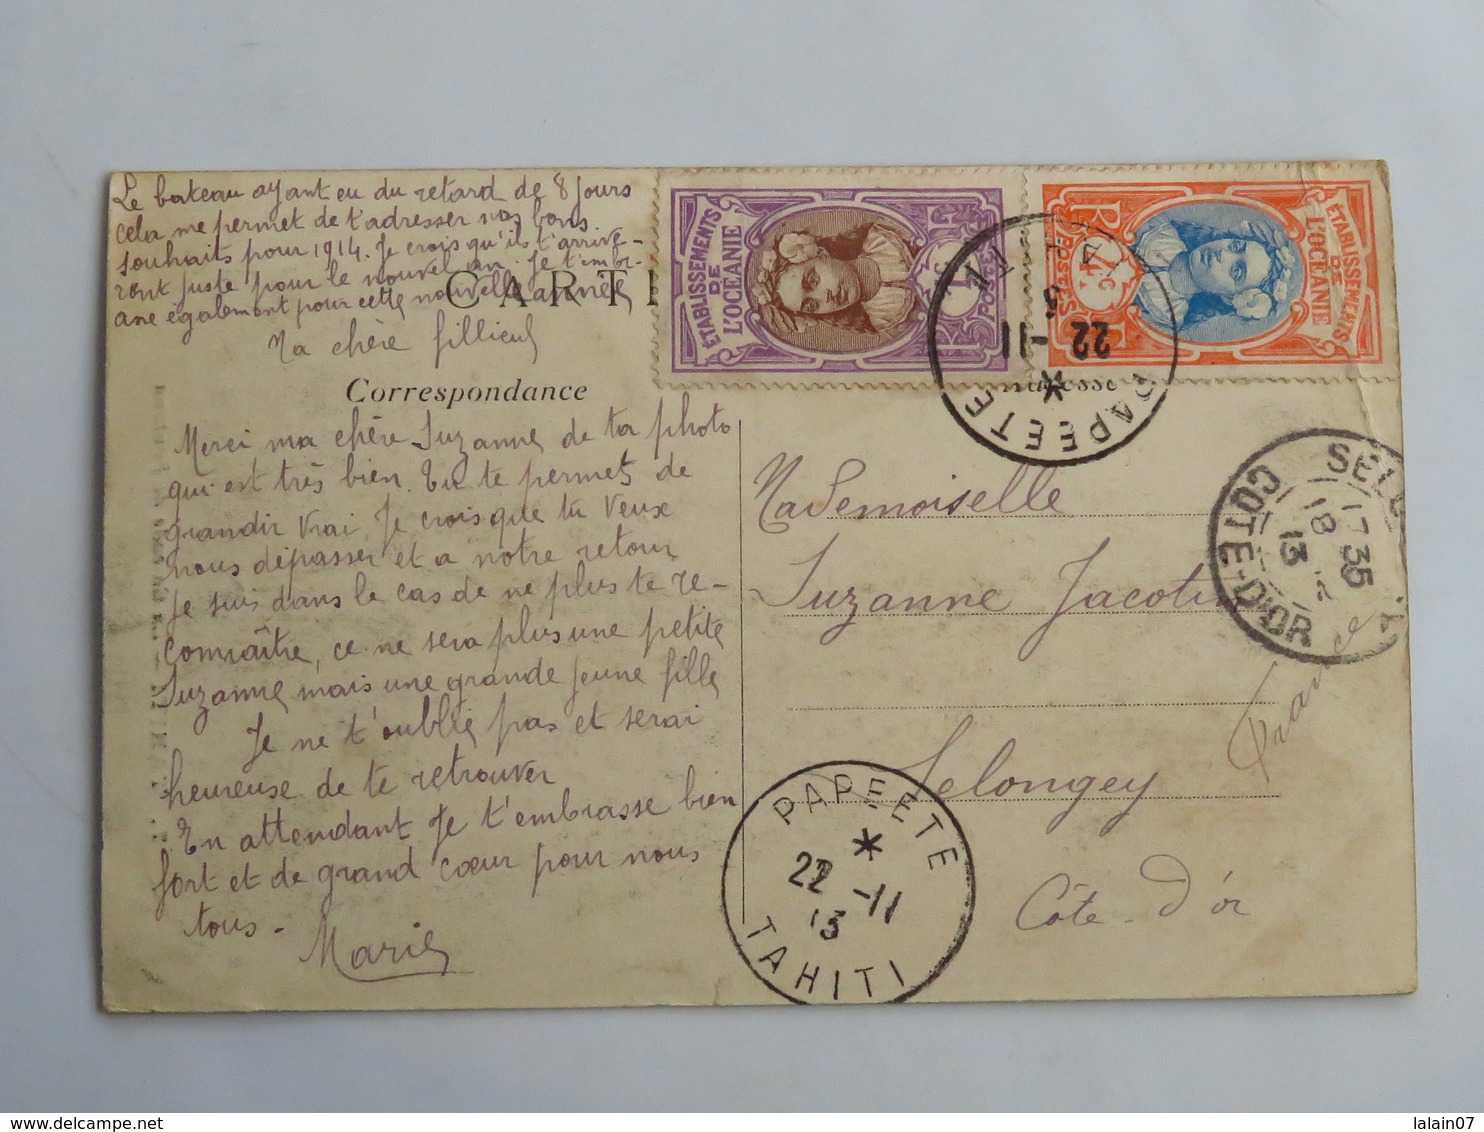 Le bateau ayant eu du retard de 8 jours
cela me permet de t'adresser nos bons
souhaits pour 1914. Je crois qu'ils t'arrive-
ront juste pour le nouvel an. Je t'embr-
asse également pour cette nouvelle année
CARTE
Ma chère fillieul
Correspondance
Merci ma chère Suzanne de ta photo
qui est très bien. Tu te permets de
grandir vrai je crois que tu veux
nous dépasser et a notre retour
Je suis dans le cas de ne plus te re-
connaître, ce ne sera plus une petite
Suzanne mais une grande jeune fille
Je ne t'oublie pas et serai
heureuse de te retrouver
En attendant je t'embrasse bien
fort et de grand cœur pour nous
tous -
Marie
ÉTABLISSEMENTS
DE
L'OCÉANIE
RF
1c
POSTES
ÉTABLISSEMENTS
DE
L'OCÉANIE
RF
POSTES
PAPEETE
22 -11
Adresse
Mademoiselle
Suzanne Jacotin
Selongey
France
Côte - d'or
SELO
17 35
18
13
COTE-D'OR
PAPEETE
22 -11
13
TAHITI
lalain07